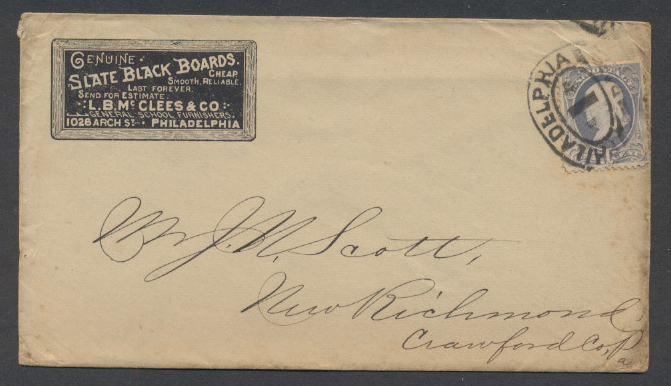 GENUINE
SLATE BLACK BOARDS.
CHEAP
SMOOTH, RELIABLE.
LAST FOREVER.
SEND FOR ESTIMATE.
L.B. Mc CLEES & CO
GENERAL SCHOOL FURNISHERS.
1028 ARCH ST. PHILADELPHIA
PHILADELPHIA
Mr J. N. Scott,
New Richmond,
Crawford Co, Pa